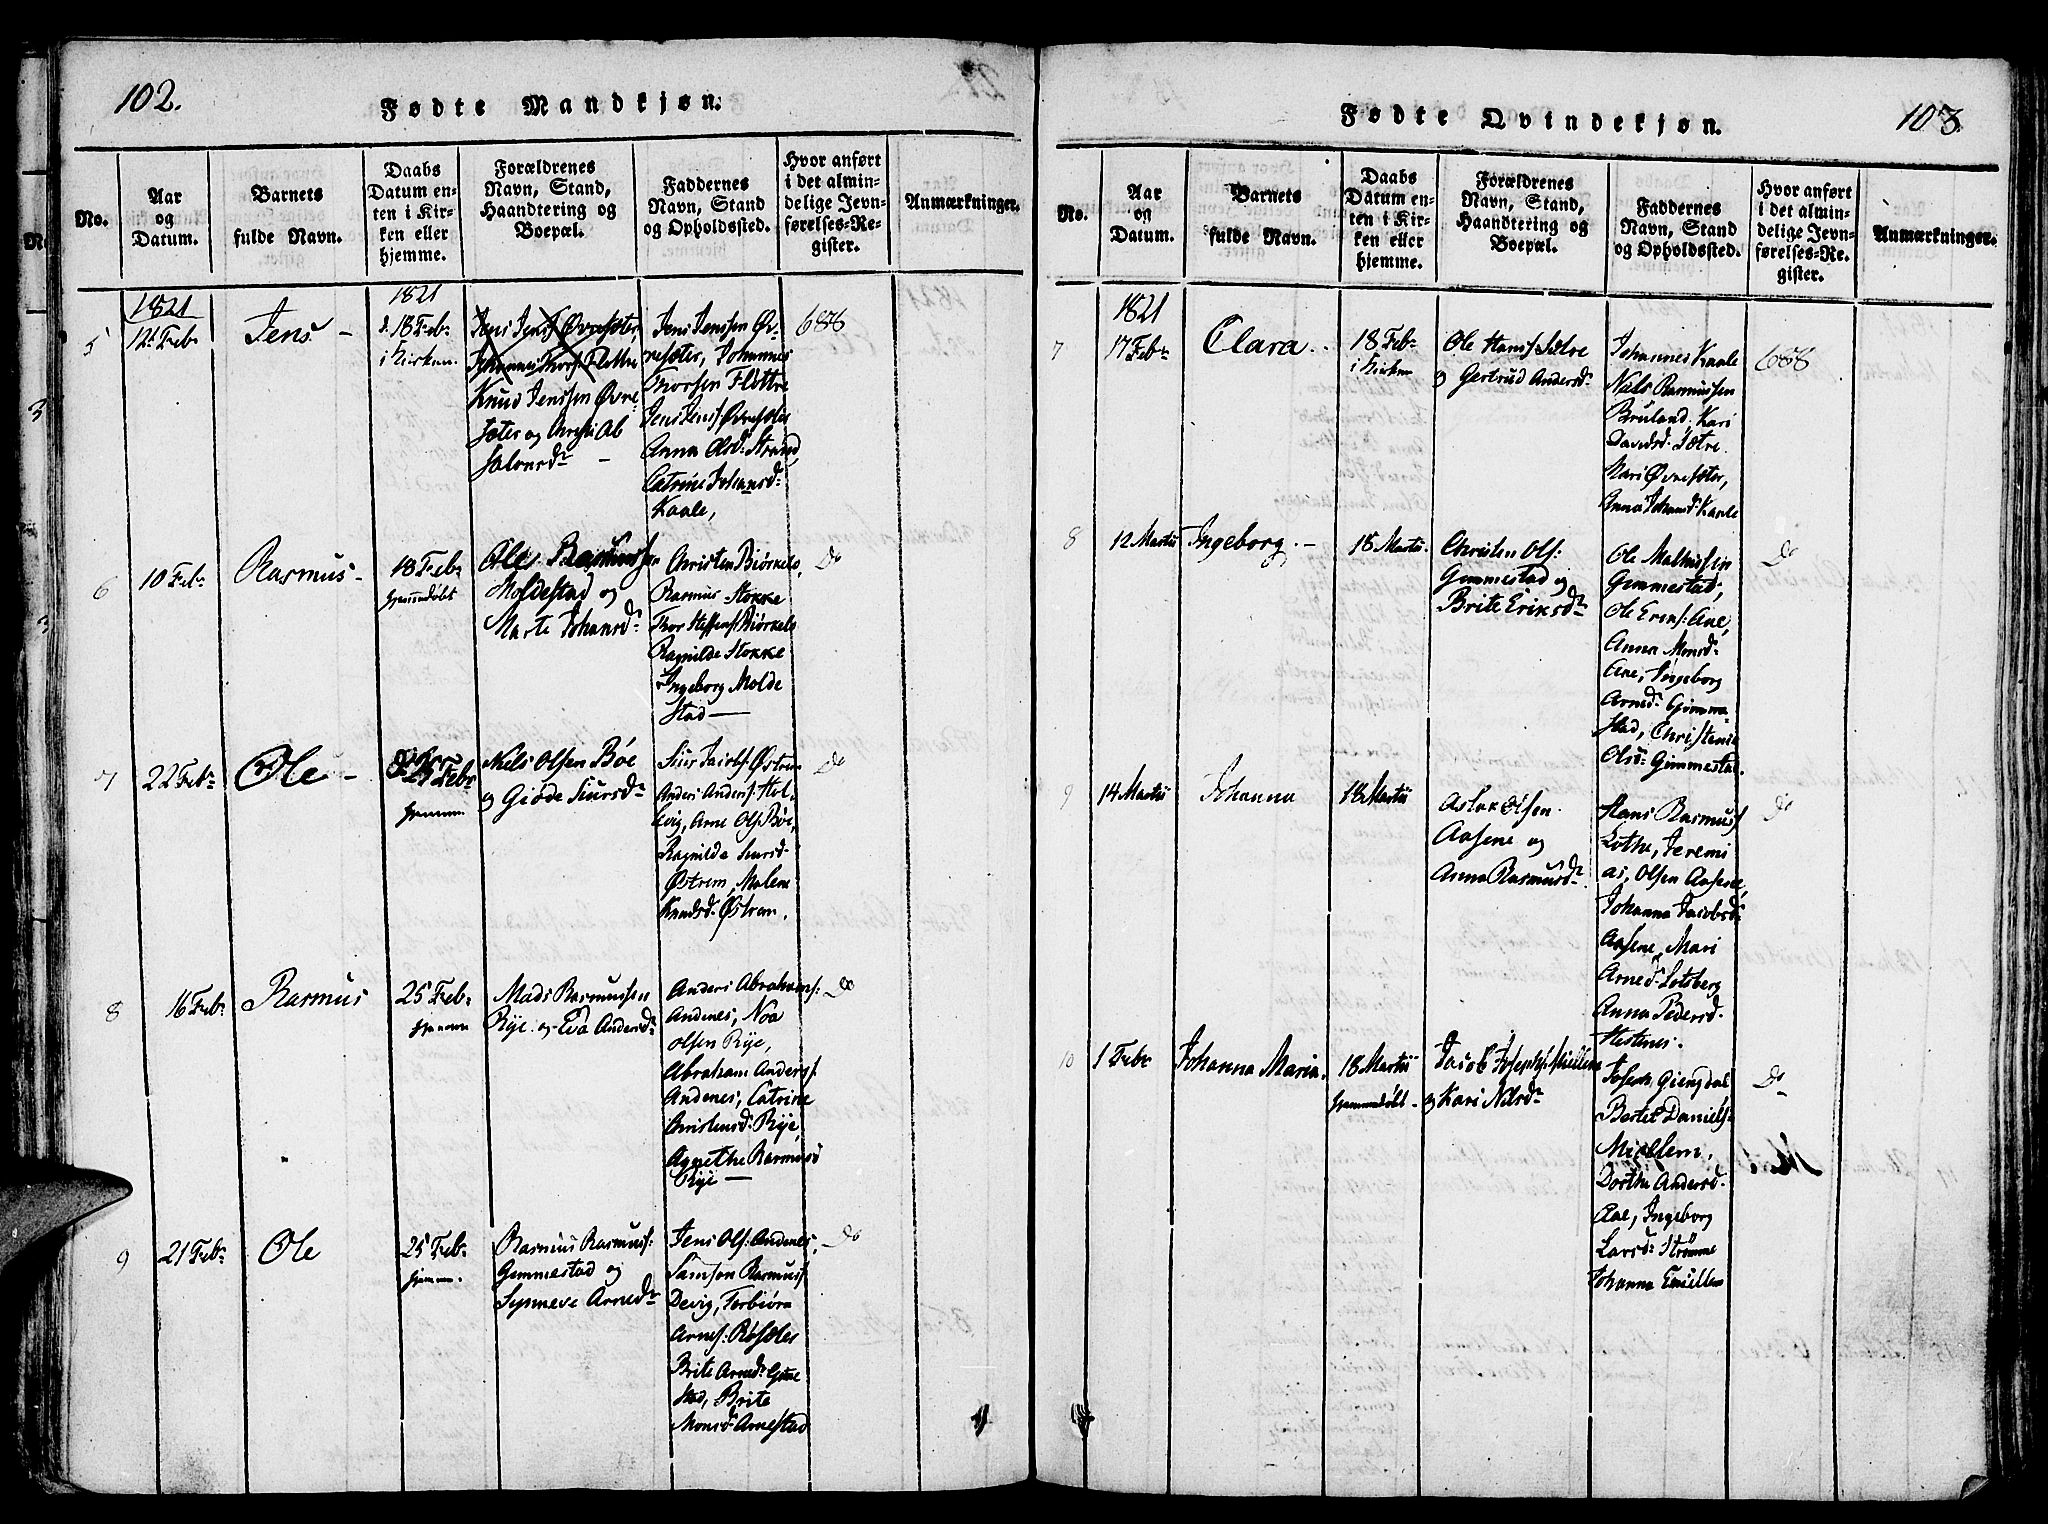 102.
Fødte Mandkjøn.
No.
Aar
og
Datum.
Barnets
fulde Navn.
Daabs
Datum en-
ten i Kir-
ken eller
hjemme.
Forældrenes
Navn, Stand,
Haandtering og
Boepæl.
Faddernes
Navn, Stand
og Opholdssted.
Hvor anført
i det almin-
delige Jevn-
førelses-Re-
gister.
Anmærkninger.
5
1821
12 Febr
Jens
1821
18 Febr
i Kirken
Jens Jenss Øvresæter,
Johannes Thorss Flottre
Knud Jenssen Øvre-
sæter og Christi Ab
salonsdr
Jens Jenssen Øv-
resæter, Johannes
Thorssen Flottre
Jens Jenss Øvresæter
Anna Olsdr Strand,
Catrine Johansdr
Kaale,
688
6
10 Febr
Rasmus
18 Febr
hjemmedøbt
Ole Rasmussen
Moldestad og
Marte Johansdr
Christen Biørkelo,
Rasmus Stokke
Thor Steffens Biørkelo
Ragnilde Stokke
Ingeborg Molde
stad
Do
7
22 Febr
Ole
25 Febr
hjemme
Niels Olsen Bøe
og Giøde Siursdr
Siur Jacobs Østrem
Anders Anders: Hol-
evig, Arne Ols: Bøe,
Ragnilde Siursd.
Østrem, Malene
Knudsd. Østrem.
Do
8
16 Febr
Rasmus
25 Febr
hjemme
Mads Rasmussen
Rye og Eva Andersdr
Anders Abrahams:
Andenes, Noa
Olsen Rye,
Abraham Anders
Andenes, Catrine
Christensd. Rye,
Agnethe Rasmusd
Rye
Do
9
21 Febr
Ole
25 Febr
hjemme
Rasmus Rasmus:
Gimmestad og
Synneve Arnedr
Jens Ols: Andenes,
Samson Rasmuss
Devig, Torbiørn
Arnes: Røsæter
Brite Arnedr Gime
stad, Brite
Monsdr Arnestad
Do
103
Fødte Qvindekjøn.
No.
Aar
og
Datum.
Barnets
fulde Navn.
Daabs
Datum en-
ten i Kir-
ken eller
hjemme.
Forældrenes
Navn, Stand,
Haandtering og
Boepæl.
Faddernes
Navn, Stand
og Opholdssted.
Hvor anført
i det almin-
delige Jevn-
førelses-Re-
gister.
Anmærkninger.
7
1821
17 Febr
Clara
18 Febr
i Kirken
Ole Hanss Sætre
og Gertrud Andersdr
Johannes Kaale
Niels Rasmussen
Bruland, Kari
Davidsd. Sætre
Mari Øvresæter,
Anna Johansd. Kaale
688
8
12 Martii
Ingeborg
18 Martii
Christen Ols:
Gimmestad og
Brite Eriksdr
Ole Mathissen
Gimmestad,
Ole Erens: Aae,
Anna Monsdr
Aae, Ingeborg
Arnedr Gimme
stad, Christense
Olsdr Gimmestad.
Do
9
14 Martii
Johanna
18 Martii
Aslak Olsen
Aasene og
Anna Rasmusdr
Hans Rasmuss
Lothe, Jeremi
as, Olsen Aasene,
Johanna Jacobsdr
Aasene, Mari
Arnedr Lotsberg
Anna Pedersd.
Hestenes.
Do
10
1 Febr
Johanna Maria
18 Martii
hjemmedøbt
Jacob Josephs: Miellem
og Kari Nilsdr
Joseph Giengdal
Bertel Daniels
Miellem,
Dorthe Andersd.
Aae, Ingeborg
Larsdr Strømme
Johanna Emiellem
Do